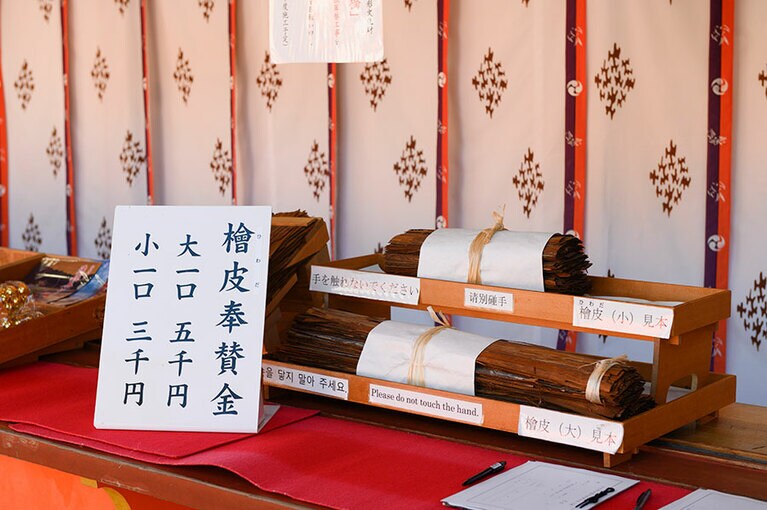 檜皮奉賛金
ひわだ
大一口 五千円
小一口 三千円
手を触れないでください
请别碰手
檜皮（小）見本
ひわだ
을 닿지 말아 주세요
Please do not touch the hand.
檜皮（大）見本